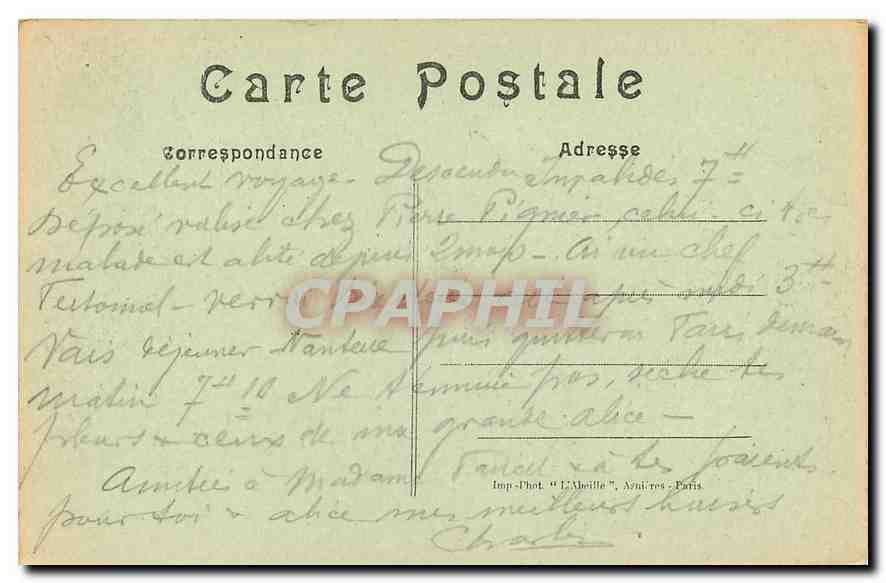 Carte Postale
Correspondance
Adresse
Excellent voyage. Descendu Invalides 7H
Déposé valise chez Pierre Pignier, celui-ci très
malade est alité depuis 2 mois - Ai vu chef
verrai après midi 3H
Vais déjeuner Nanterre puis quitterai Paris demain
matin 7H10 Ne t'ennuie pas, sèche tes
pleurs & ceux de ma grande alice -
Amitiés à Madame & à tes parents
pour toi & alice mes meilleurs baisers
Charles
CPAPHIL
Imp-Phot. "L'Abeille", Asnières-Paris.